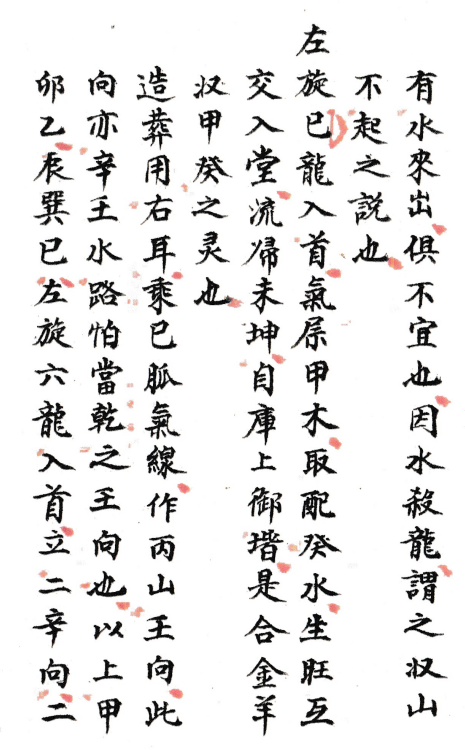 有水來出俱不宜也因水殺龍謂之収山
不起之說也
左旋巳龍入首氣屌甲木取配癸水生旺互
交入堂流㷌未坤自庫上御堦是合金羊
収甲癸之灵也
造葬用右耳乘巳脈氣線作丙山王向此
向亦辛王水路怕當乾之王向也以上甲
卯乙辰巽巳左旋六龍入首立二辛向二